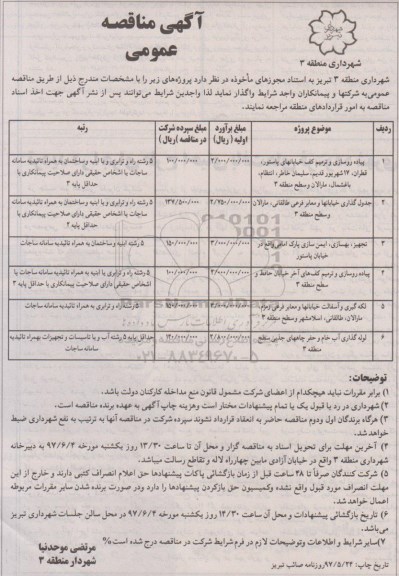 آگهی مناقصه
عمومی
شهرداری منطقه ۳
شهرداری منطقه ۳ تبریز به استناد مجوزهای مأخوذه در نظر دارد پروژه‌های زیر را با مشخصات مندرج ذیل از طریق مناقصه
عمومی به شرکتها و پیمانکاران واجد شرایط واگذار نماید لذا واجدین شرایط می‌توانند پس از نشر آگهی جهت اخذ اسناد
مناقصه به امور قراردادهای منطقه مراجعه نمایند.
ردیف موضوع پروژه مبلغ برآورد اولیه (ریال) مبلغ سپرده شرکت در مناقصه (ریال) رتبه
۱ پیاده روسازی و ترمیم کف خیابانهای پاستور، قطران، ۱۷ شهریور قدیم، سلیمان خاطر، انتظام، باغشمال، مارالان وسطح منطقه ۳ ۲/۰۰۰/۰۰۰/۰۰۰ ۱۰۰/۰۰۰/۰۰۰ ۵ رشته راه و ترابری و یا ابنیه وساختمان به همراه تائیدیه سامانه ساجات یا اشخاص حقیقی دارای صلاحیت پیمانکاری با حداقل پایه ۳
۲ جدول گذاری خیابانها و معابر فرعی طالقانی، مارالان وسطح منطقه ۳ ۲/۷۵۰/۰۰۰/۰۰۰ ۱۳۷/۵۰۰/۰۰۰ ۵ رشته راه و ترابری و یا ابنیه وساختمان به همراه تائیدیه سامانه ساجات یا اشخاص حقیقی دارای صلاحیت پیمانکاری با حداقل پایه ۳
۳ تجهیز، بهسازی، ایمن سازی پارک امامی واقع در خیابان پاستور ۳/۰۰۰/۰۰۰/۰۰۰ ۱۵۰/۰۰۰/۰۰۰ ۵ رشته ابنیه وساختمان به همراه تائیدیه سامانه ساجات
۴ پیاده روسازی و ترمیم کف‌های آخر خیابان حافظ و سطح منطقه ۳ ۲/۰۰۰/۰۰۰/۰۰۰ ۱۰۰/۰۰۰/۰۰۰ ۵ رشته راه و ترابری و یا ابنیه وساختمان به همراه تائیدیه سامانه ساجات یا اشخاص حقیقی دارای صلاحیت پیمانکاری با حداقل پایه ۳
۵ لکه گیری و آسفالت خیابانها و معابر فرعی مارالان، طالقانی، اسلامشهر وسطح منطقه ۳ ۵ رشته راه و ترابری به همراه تائیدیه سامانه ساجات
۶ لوله گذاری آب خام و حفر چاههای جذبی سطح منطقه ۳ ۲/۸۰۰/۰۰۰/۰۰۰ ۱۴۰/۰۰۰/۰۰۰ حداقل پایه ۵ رشته آب و یا تاسیسات و تجهیزات بهمراه تائیدیه سامانه ساجات
۰۲۱-۸۸۳۴۹۶۷۰-۵
توضیحات:
۱) برابر مقررات نباید هیچکدام از اعضای شرکت مشمول قانون منع مداخله کارکنان دولت باشد.
۲) شهرداری در رد یا قبول یک یا تمام پیشنهادات مختار است وهزینه چاپ آگهی به عهده برنده مناقصه است.
۳) هرگاه برندگان اول ودوم مناقصه حاضر به انعقاد قرارداد نشوند سپرده شرکت در مناقصه آنها به ترتیب به نفع شهرداری ضبط
خواهد شد.
۴) آخرین مهلت برای تحویل اسناد به مناقصه گزار و محل آن تا ساعت ۱۳/۳۰ روز یکشنبه مورخه ۹۷/۶/۴ به دبیرخانه
شهرداری منطقه ۳ واقع در خیابان آزادی مابین چهارراه لاله و تقاطع رسالت میباشد.
۵) شرکت کنندگان صرفاً تا ۴۸ ساعت قبل از زمان بازگشائی پاکات پیشنهادها حق اعلام انصراف کتبی دارند و خارج از این
مهلت انصراف مورد قبول واقع نشده وکمیسیون حق بازکردن پیشنهادها را دارد ودر صورت برنده شدن سایر مقررات مربوطه
اعمال خواهد شد.
۶) تاریخ بازگشائی پیشنهادات و محل آن ساعت ۱۴/۳۰ روز یکشنبه مورخه ۹۷/۶/۴ در محل سالن جلسات شهرداری تبریز
می‌باشد.
۷) سایر شرایط و اطلاعات وتوضیحات لازم در فرم شرایط شرکت در مناقصه درج شده است%
مرتضی موحدنیا
شهردار منطقه ۳
تاریخ چاپ: ۹۷/۵/۲۴ روزنامه صائب تبریز